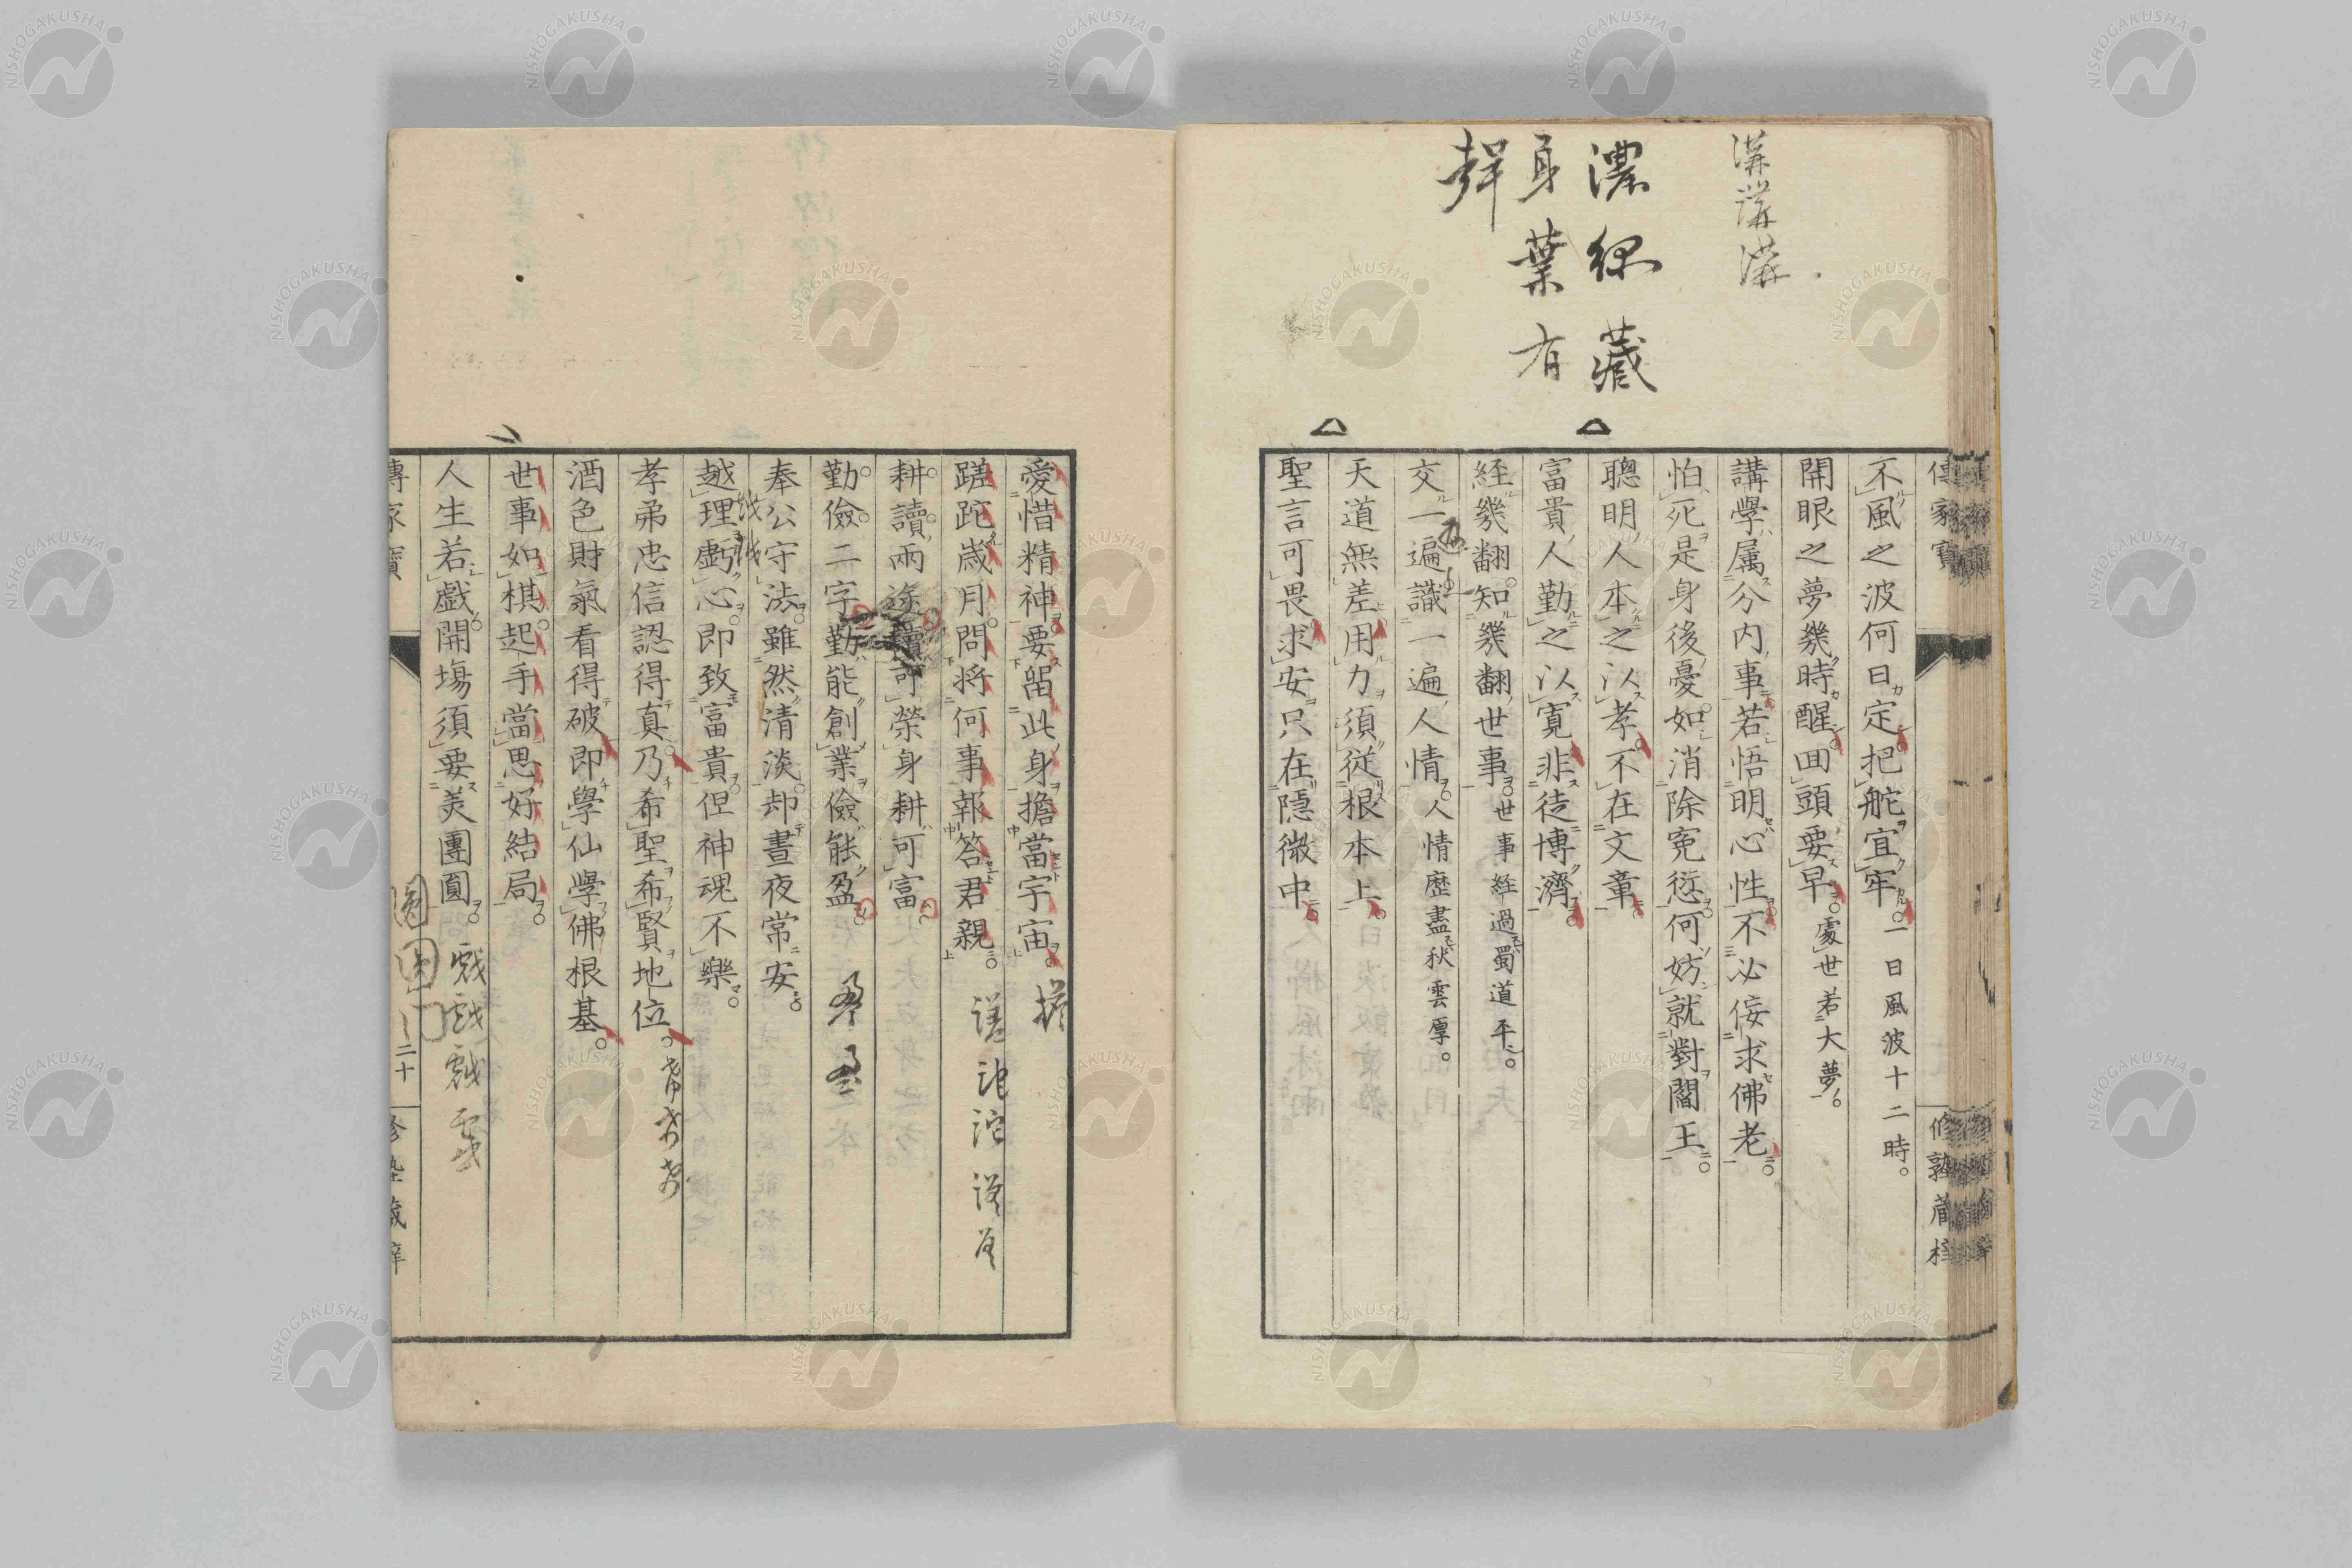 講講講
濃緑藏
身葉有
聲
傳家寶
不風之波何日定把舵宜牢。一日風波十二時。
開眼之夢幾時醒回頭要早。處世若大夢。
講學属分内事若悟明心性不必佞求佛老。
怕死是身後憂如消除冤愆何妨就對閻王。
聰明人本之以孝不在文章。
富貴人勤之以寛非徒博濟。
経幾翻知幾翻世事。世事経過蜀道平。
交一遍識一遍人情。人情歴盡秋雲厚。
天道無差用力須従根本上。
聖言可畏求安只在隠微中。
修塾蔵梓
愛惜精神要留此身擔當宇宙。擔
蹉跎歳月問将何事報答君親。
耕讀兩途讀可榮身耕可富。
勤儉二字勤能創業儉能盈。
奉公守法雖然清淡却晝夜常安。
越理虧心即致富貴但神魂不樂。
孝弟忠信認得真乃希聖希賢地位。
酒色財氣看得破即學仙學佛根基。
世事如棋起手當思好結局。
人生若戲開塲須要美團圓。戲戲戲
傳家寶
二十
修塾蔵梓
NISHOGAKUSHA